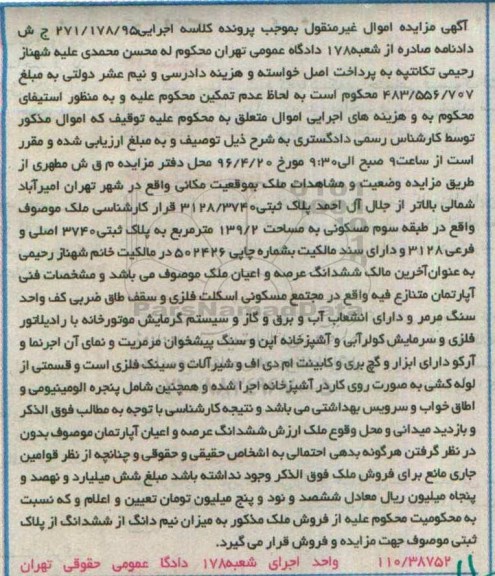 آگهی مزایده اموال غیرمنقول بموجب پرونده کلاسه اجرایی۲۷۱/۱۷۸/۹۵ ج ش
دادنامه صادره از شعبه۱۷۸ دادگاه عمومی تهران محکوم له محسن محمدی علیه شهناز
رحیمی تکانتپه به پرداخت اصل خواسته و هزینه دادرسی و نیم عشر دولتی به مبلغ
۴۸۳/۵۵۶/۷۰۷ محکوم است به لحاظ عدم تمکین محکوم علیه و به منظور استیفای
محکوم به و هزینه های اجرایی اموال متعلق به محکوم علیه توقیف که اموال مذکور
توسط کارشناس رسمی دادگستری به شرح ذیل توصیف و به مبلغ ارزیابی شده و مقرر
است از ساعت۹ صبح الی۹:۳۰ مورخ ۹۶/۴/۲۰ محل دفتر مزایده م ق ش مطهری از
طریق مزایده وضعیت و مشاهدات ملک بموقعیت مکانی واقع در شهر تهران امیرآباد
شمالی بالاتر از جلال آل احمد پلاک ثبتی۳۱۲۸/۳۷۴۰ قرار کارشناسی ملک موصوف
واقع در طبقه سوم مسکونی به مساحت ۱۳۹/۲ مترمربع به پلاک ثبتی۳۷۴۰ اصلی و
فرعی۳۱۲۸ و دارای سند مالکیت بشماره چاپی ۵۰۲۴۲۶ در مالکیت خانم شهناز رحیمی
به عنوان آخرین مالک ششدانگ عرصه و اعیان ملک موصوف می باشد و مشخصات فنی
آپارتمان متنازع فیه واقع در مجتمع مسکونی اسکلت فلزی و سقف طاق ضربی کف واحد
سنگ مرمر و دارای انشعاب آب و برق و گاز و سیستم گرمایش موتورخانه با رادیلاتور
فلزی و سرمایش کولرآبی و آشپزخانه اپن و سنگ پیشخوان مرمریت و نمای آن اجرنما و
آرکو دارای ابزار و گچ بری و کابینت ام دی اف و شیرآلات و سینک فلزی است و قسمتی از
لوله کشی به صورت روی کار در آشپزخانه اجرا شده و همچنین شامل پنجره الومینیومی و
اطاق خواب و سرویس بهداشتی می باشد و نتیجه کارشناسی با توجه به مطالب فوق الذکر
و بازدید میدانی و محل وقوع ملک ارزش ششدانگ عرصه و اعیان آپارتمان موصوف بدون
در نظر گرفتن هرگونه بدهی احتمالی به اشخاص حقیقی و حقوقی و چنانچه از نظر قوامین
جاری مانع برای فروش ملک فوق الذکر وجود نداشته باشد مبلغ شش میلیارد و نهصد و
پنجاه میلیون ریال معادل ششصد و نود و پنج میلیون تومان تعیین و اعلام و که نسبت
به محکومیت محکوم علیه از فروش ملک مذکور به میزان نیم دانگ از ششدانگ از پلاک
ثبتی موصوف جهت مزایده و فروش قرار می گیرد.
۱۱۰/۳۸۷۵۲ واحد اجرای شعبه۱۷۸ دادگا عمومی حقوقی تهران